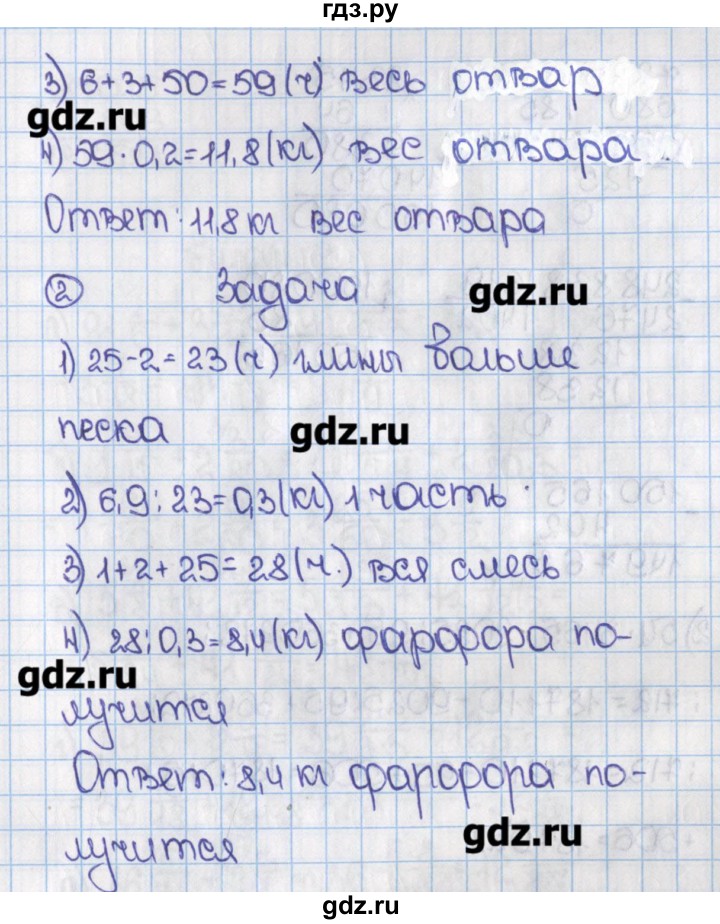 гдз.ру
3) 6+3+50=59(ч) весь отвар
gdz.ru
4) 59·0,2=11,8(кг) вес отвара.
Ответ: 11,8 кг вес отвара
2 Задача
gdz.ru
1) 25-2=23(ч) глины больше
песка
gdz.ru
2) 6,9:23=0,3(кг) 1 часть.
3) 1+2+25=28(ч.) вся смесь
4) 28:0,3=8,4(кг) фарфора по-
gdz.ru
лучится
Ответ: 8,4 кг фарфора по-
gdz.ru
лучится
gdz.ru